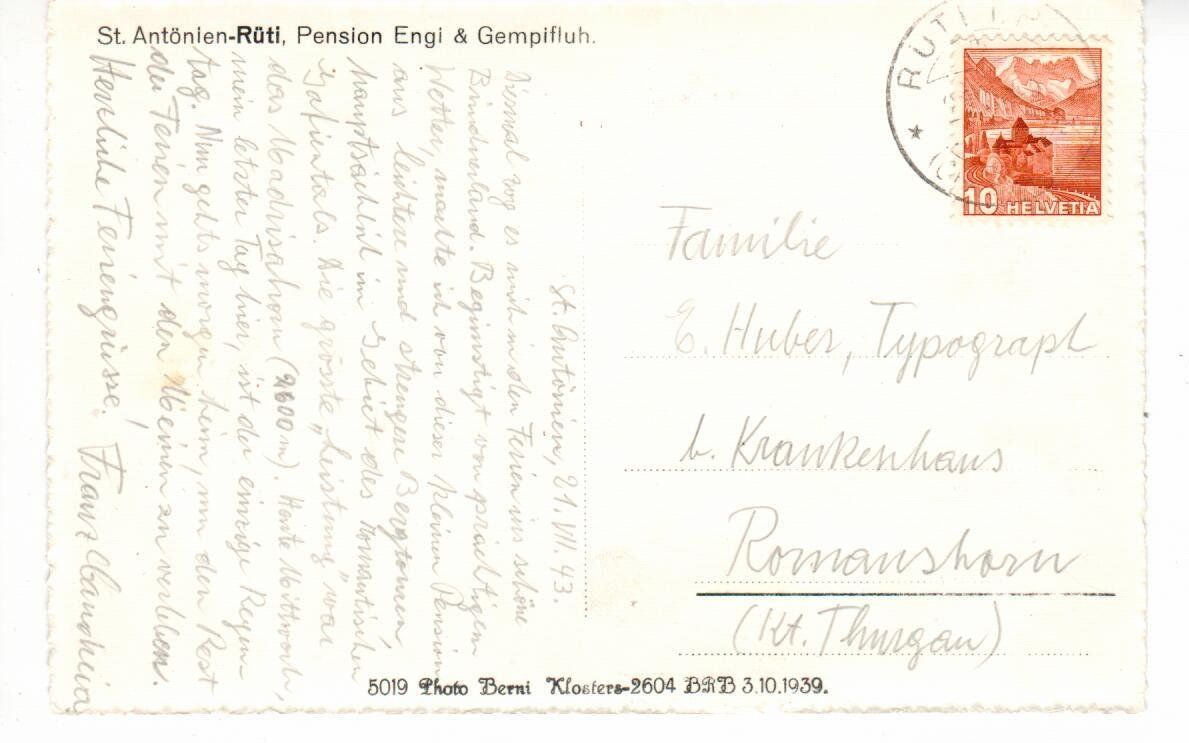 St. Antönien-Rüti, Pension Engi & Gempifluh.
St. Antönien, 21. VII. 43.
Diesmal zog es mich in den Ferien ins schöne
Bündnerland. Begünstigt von prächtigem
Wetter, machte ich von dieser kleinen Pension
aus leichtere und strengere Bergtouren
hauptsächl. im Gebiet des romantischen
Die grösste „Leistung" war
das Madrisahorn (2800 m). Heute Mittwoch,
mein letzter Tag hier, ist der einzige Regen-
tag. Nun gehts morgen heim, um den Rest
der Ferien mit den Meinen zu verleben.
Herzliche Feriengrüsse! Franz
RÜTI
10 HELVETIA
Familie
E. Huber, Typograph
b. Krankenhaus
Romanshorn
(Kt. Thurgau)
5019 Photo Berni Klosters-2604 BRB 3.10.1939.